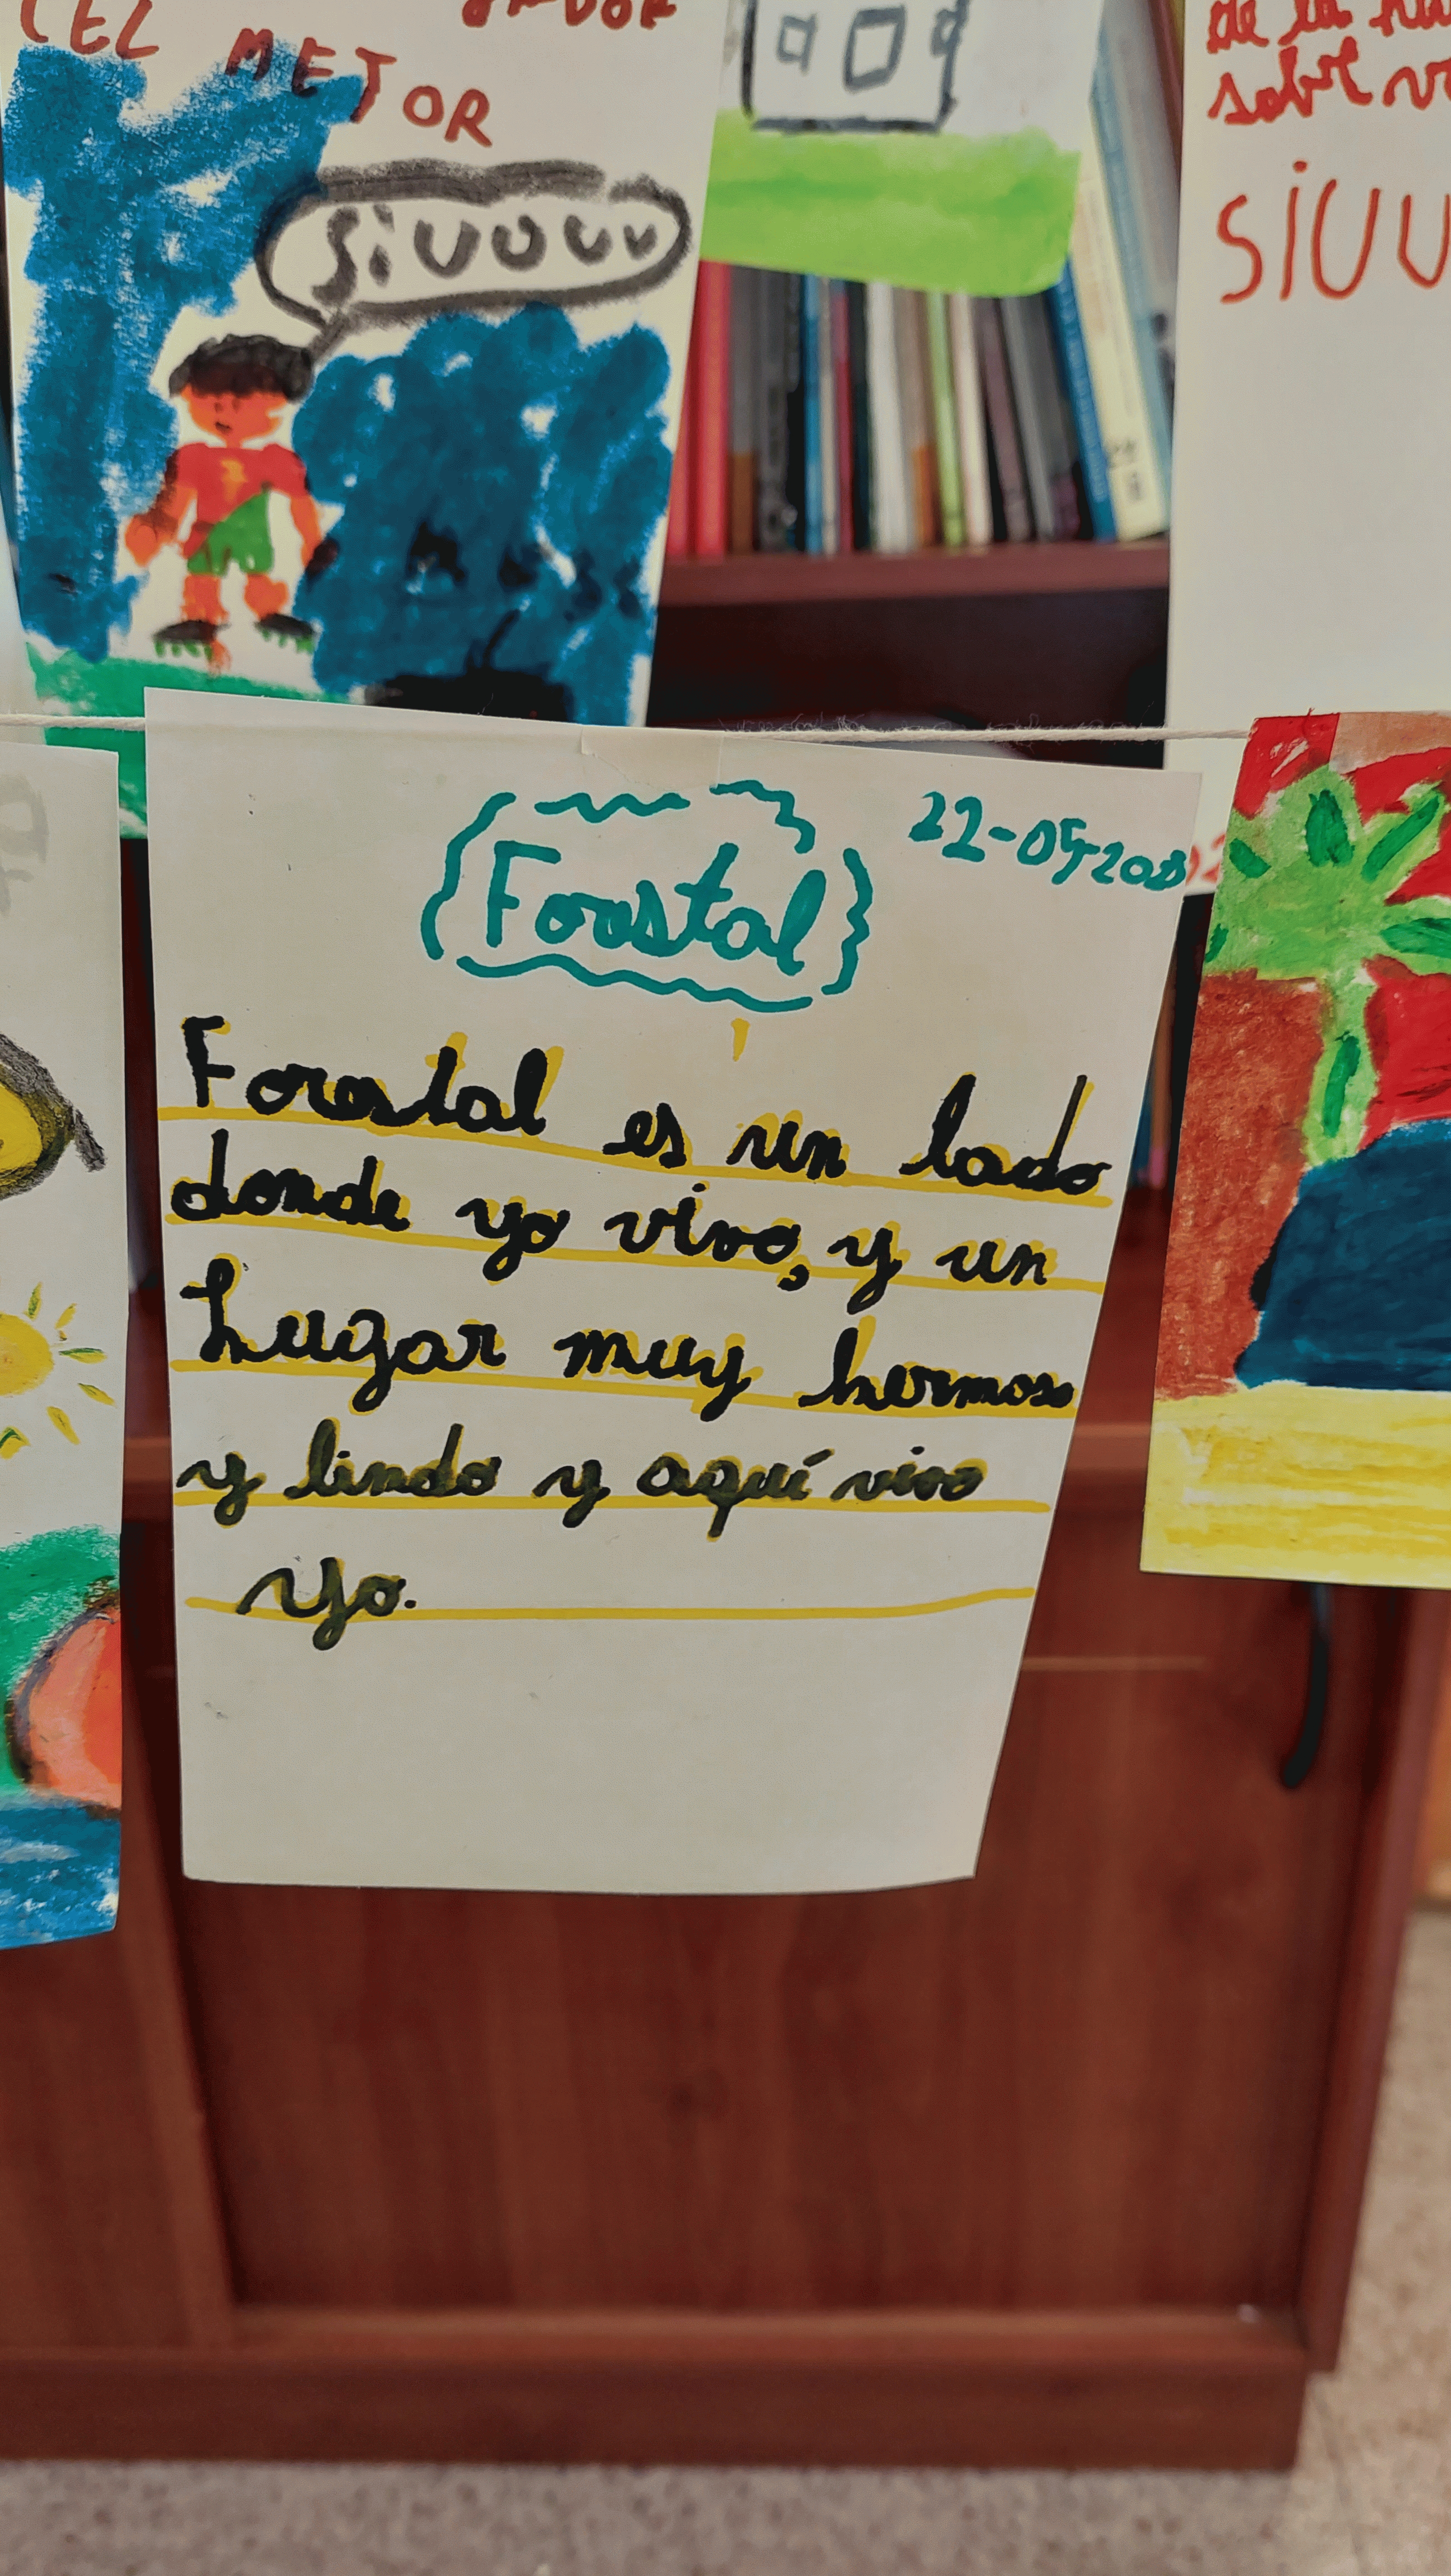 MEJOR
SiUUUU
de la
sobre
SIUU
22-05-202
Forestal
Forestal es un lado
donde yo vivo, y un
Lugar muy hermoso
y lindo y aquí vivo
yo.